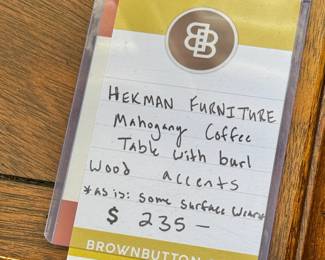 BB
HEKMAN FURNITURE
Mahogany Coffee
Table with burl
Wood accents
*AS is: some surface wear
$ 235 —
BROWNBUTTON